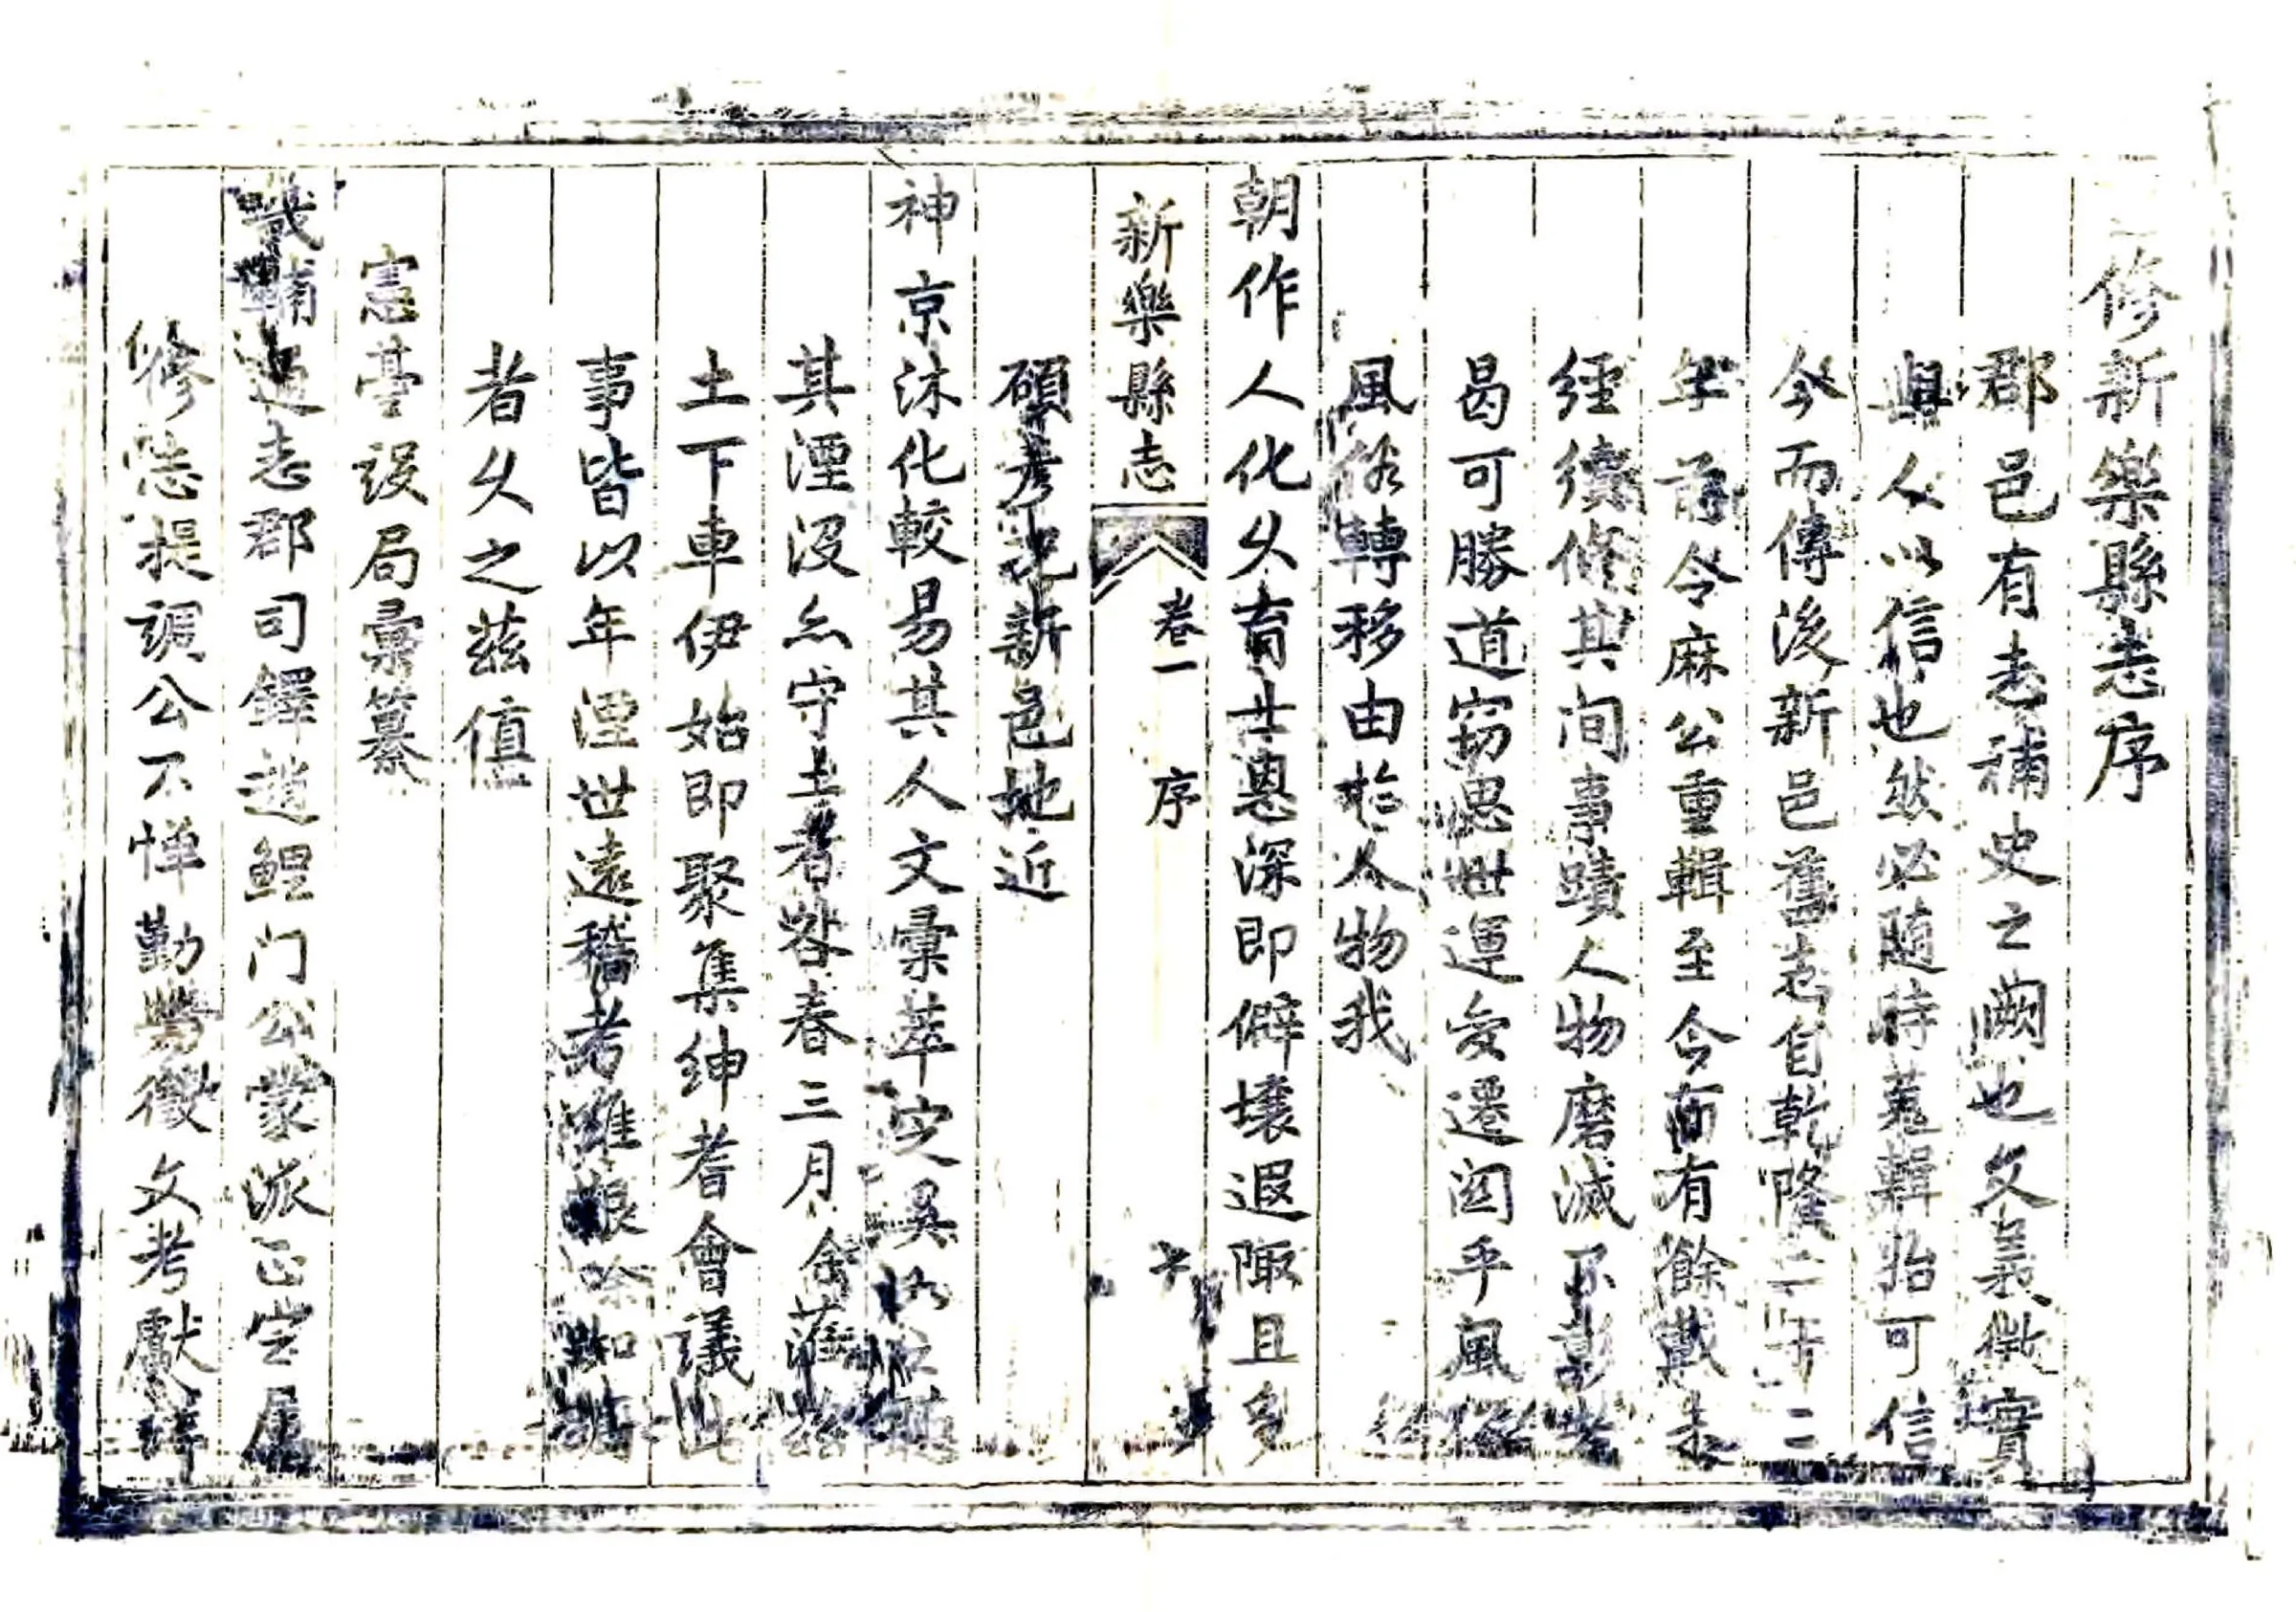 修新樂縣志序
郡邑有志補史之闕也文義徵實
與人以信也然必隨時蒐輯始可信
今而傳後新邑舊志自乾隆二十二
年前令麻公重輯至今百有餘載未
經續修其间事蹟人物磨滅不彰
曷可勝道窃思世運变遷因乎風俗
風俗轉移由於人物我
朝作人化乆育士恩深即僻壤遐陬且多
新樂縣志
卷一 序
碩考况新邑地近
神京沐化較易其人文彙萃
其湮沒尓守土者咎春三月余蒞茲
土下車伊始即聚集紳耆會議此
事皆以年湮世遠稽考難
者乆之茲值
憲臺设局彙纂
畿輔通志郡司鐸趙鯉门公蒙派正定屬
修志提调公不惮勤勞徵文考獻詳